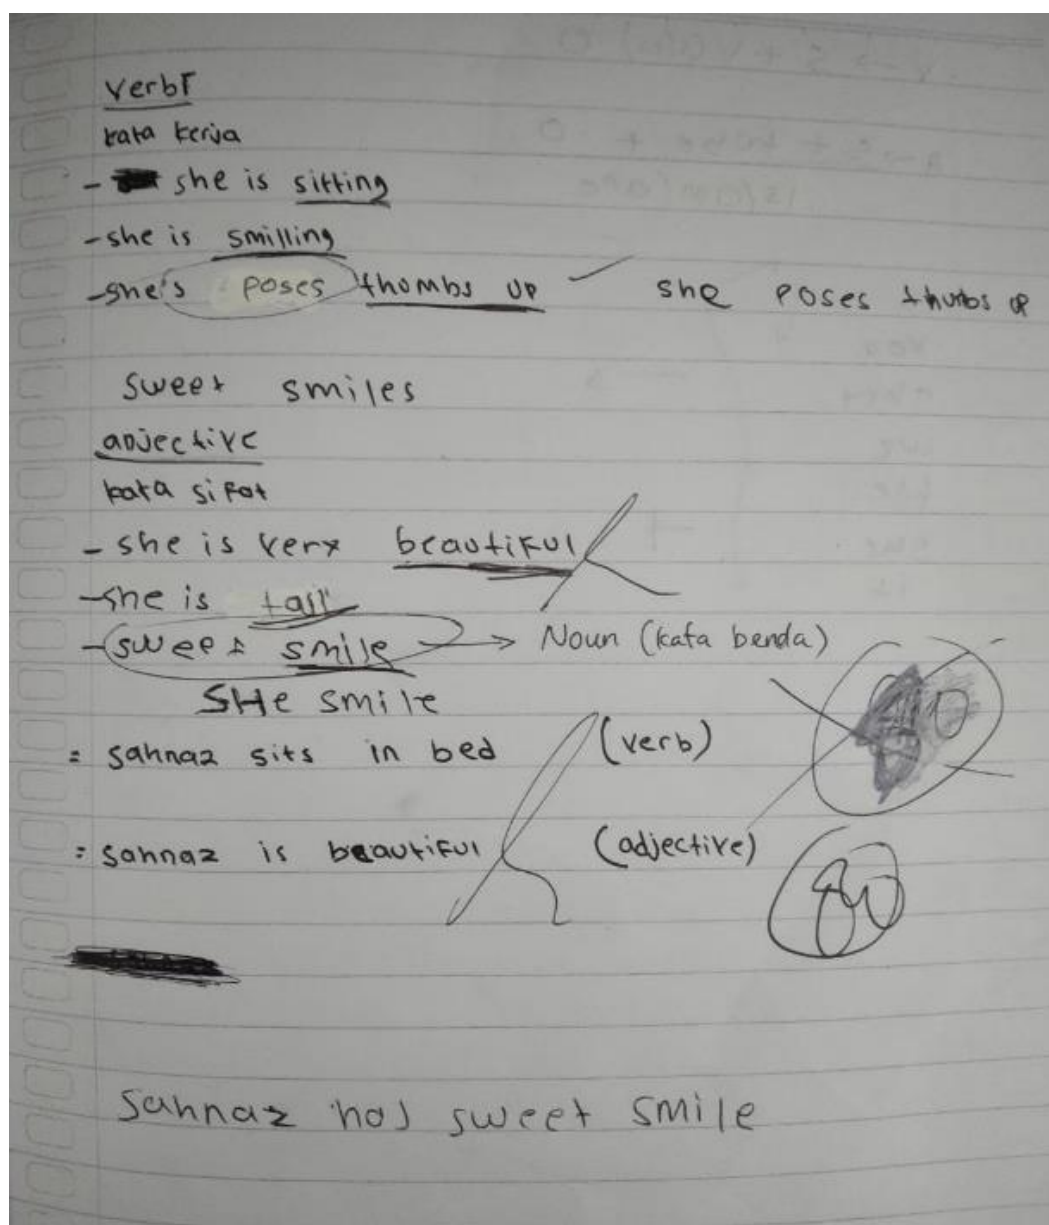 verb
kata kerja
- she is sitting
- she is smilling
- she's poses thombs up she poses thumbs up
sweet smiles
adjective
kata sifat
- she is very beautiful
- she is tall
- sweet smile → Noun (kata benda)
SHe smile
= sahnaz sits in bed (verb)
= sahnaz is beautiful (adjective)
80
sahnaz has sweet smile